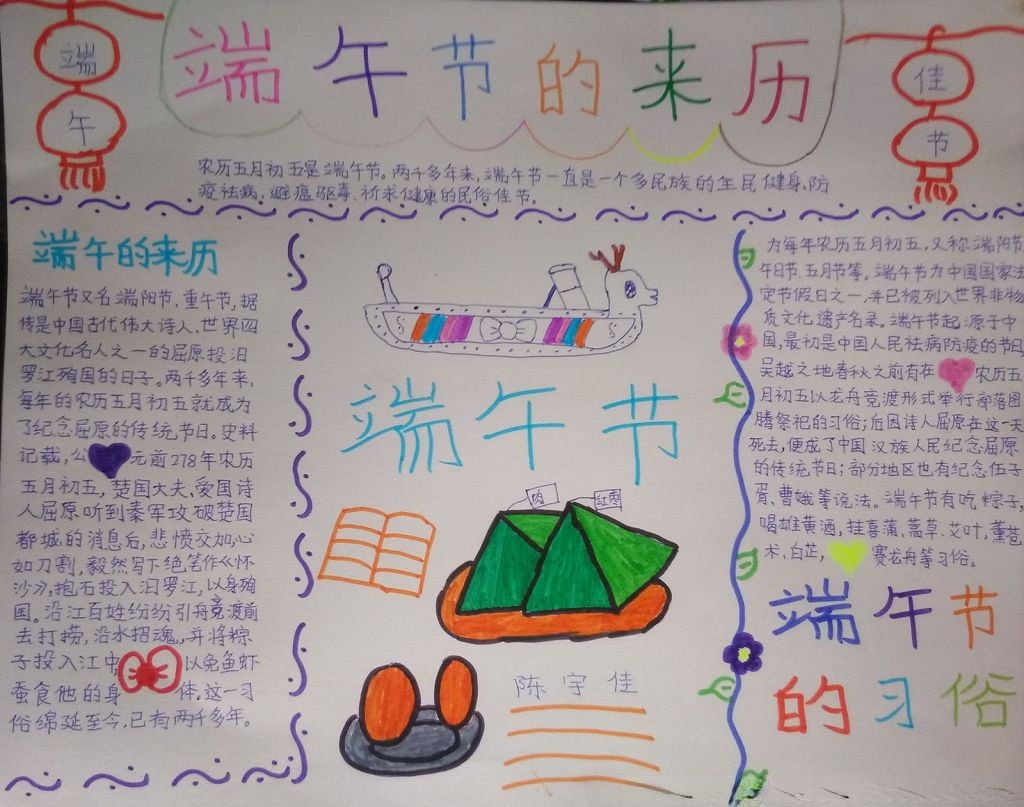 端午
端午节的来历
佳节
农历五月初五是端午节。两千多年来,端午节一直是一个多民族的全民健身,防
疫祛病、避瘟驱毒、祈求健康的民俗佳节。
端午的来历
端午节又名端阳节、重午节,据
传是中国古代伟大诗人、世界四
大文化名人之一的屈原投汨
罗江殉国的日子。两千多年来,
每年的农历五月初五就成为
了纪念屈原的传统节日。史料
记载,公元前278年农历
五月初五,楚国大夫、爱国诗
人屈原听到秦军攻破楚国
都城的消息后,悲愤交加,心
如刀割,毅然写下绝笔作《怀
沙》,抱石投入汨罗江,以身殉
国。沿江百姓纷纷引舟竞渡前
去打捞,沿水招魂,并将粽
子投入江中,以免鱼虾
蚕食他的身体。这一习
俗绵延至今,已有两千多年。
端午节
肉
红枣
陈宇佳
为每年农历五月初五,又称端阳节
午日节、五月节等。端午节为中国国家法
定节假日之一,并已被列入世界非物
质文化遗产名录。端午节起源于中
国,最初是中国人民祛病防疫的节日,
吴越之地春秋之前有在农历五
月初五以龙舟竞渡形式举行部落图
腾祭祀的习俗;后因诗人屈原在这一天
死去,便成了中国汉族人民纪念屈原
的传统节日;部分地区也有纪念伍子
胥、曹娥等说法。端午节有吃粽子,
喝雄黄酒,挂喜蒲、蒿草、艾叶,薰苍
术、白芷,赛龙舟等习俗。
端午节
的习俗